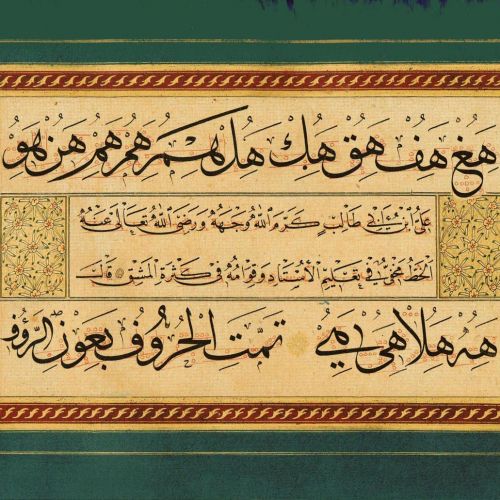 هغ هف هق هك هل هم هم هم هن هو
علي ابن أبي طالب كرم الله وجهه ورضي الله تعالى عنه
الخط مخفي في تعليم الأستاد وقوامه في كثرة المشق قال
هه هلا هى ي تمت الحروف بعون الرؤو